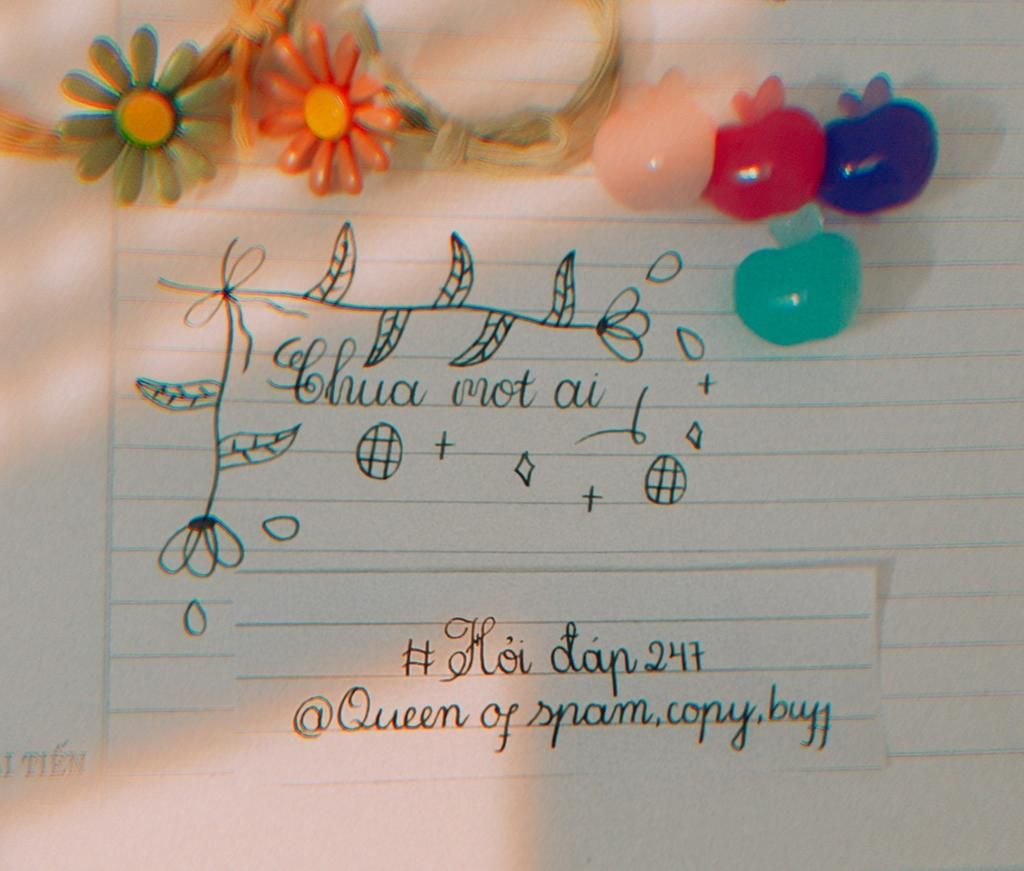 Chua mot ai
# Hỏi đáp 247
@Queen of spam, copy, buff
AI TIẾN